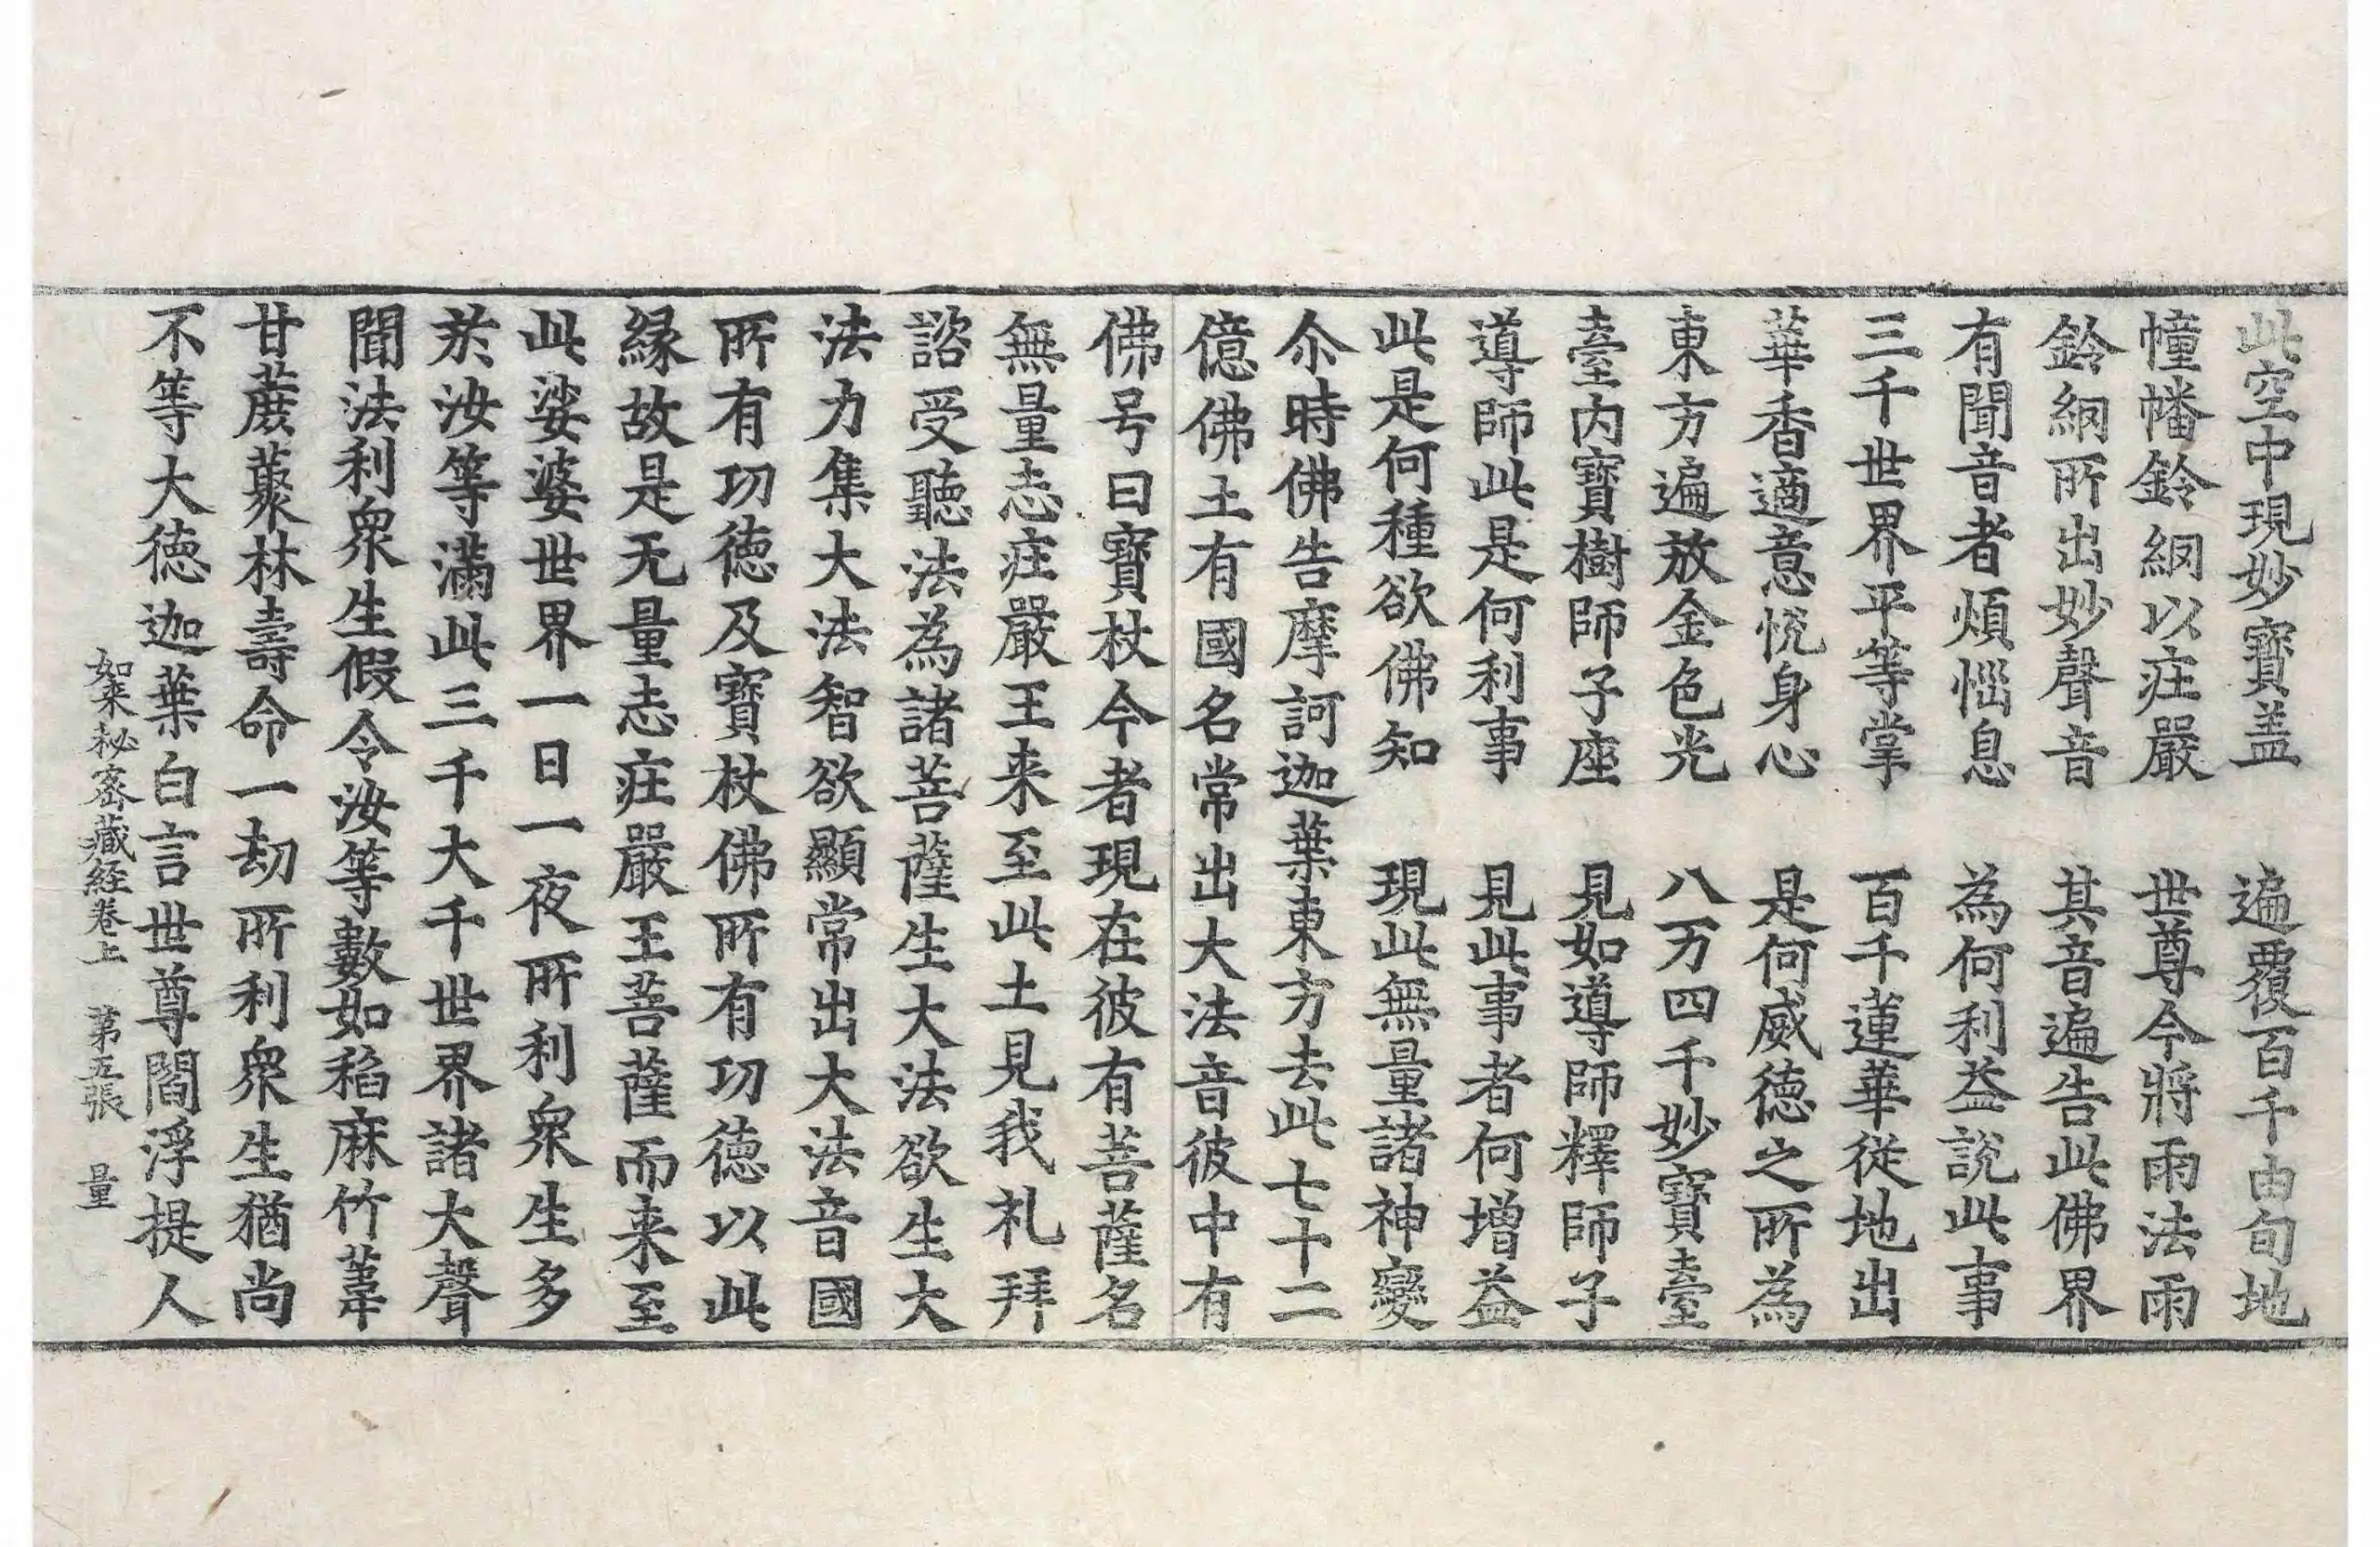 此空中現妙寶盖　遍覆百千由旬地
幢幡鈴網以庄嚴　世尊今將雨法雨
鈴網所出妙聲音　其音遍告此佛界
有聞音者煩惱息　為何利益說此事
三千世界平等掌　百千蓮華從地出
華香適意悅身心　是何威德之所為
東方遍放金色光　八万四千妙寶臺
臺内寶樹師子座　見如導師釋師子
導師此是何利事　見此事者何增益
此是何種欲佛知　現此無量諸神變
尒時佛告摩訶迦葉東方去此七十二
億佛土有國名常出大法音彼中有
佛号曰寶杖今者現在彼有菩薩名
無量志庄嚴王来至此土見我礼拜
諮受聽法為諸菩薩生大法欲生大
法力集大法智欲顯常出大法音國
所有功德及寶杖佛所有功德以此
縁故是无量志庄嚴王菩薩而来至
此娑婆世界一日一夜所利衆生多
於汝等滿此三千大千世界諸大聲
聞法利衆生假令汝等數如稻麻竹葦
甘蔗藂林壽命一劫所利衆生猶尚
不等大德迦葉白言世尊閻浮提人
如来秘密藏経卷上　第五張　量